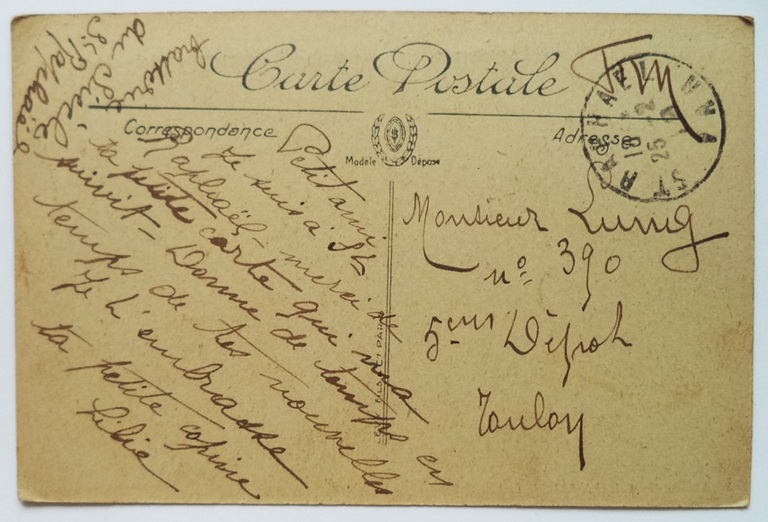 Carte Postale
Correspondance
Adresse
Modèle Déposé
FM
ST RAPHAEL VAR
18 12
25
Petit ami
Je suis à St
Raphaël, merci de
ta petite carte qui m'a
suivit - Donne de temps en
temps de tes nouvelles
Je t'embrasse
ta petite copine
Lilie
du Siècle
St Raphaël
Monsieur Lung
n° 390
5ème Dépôt
Toulon